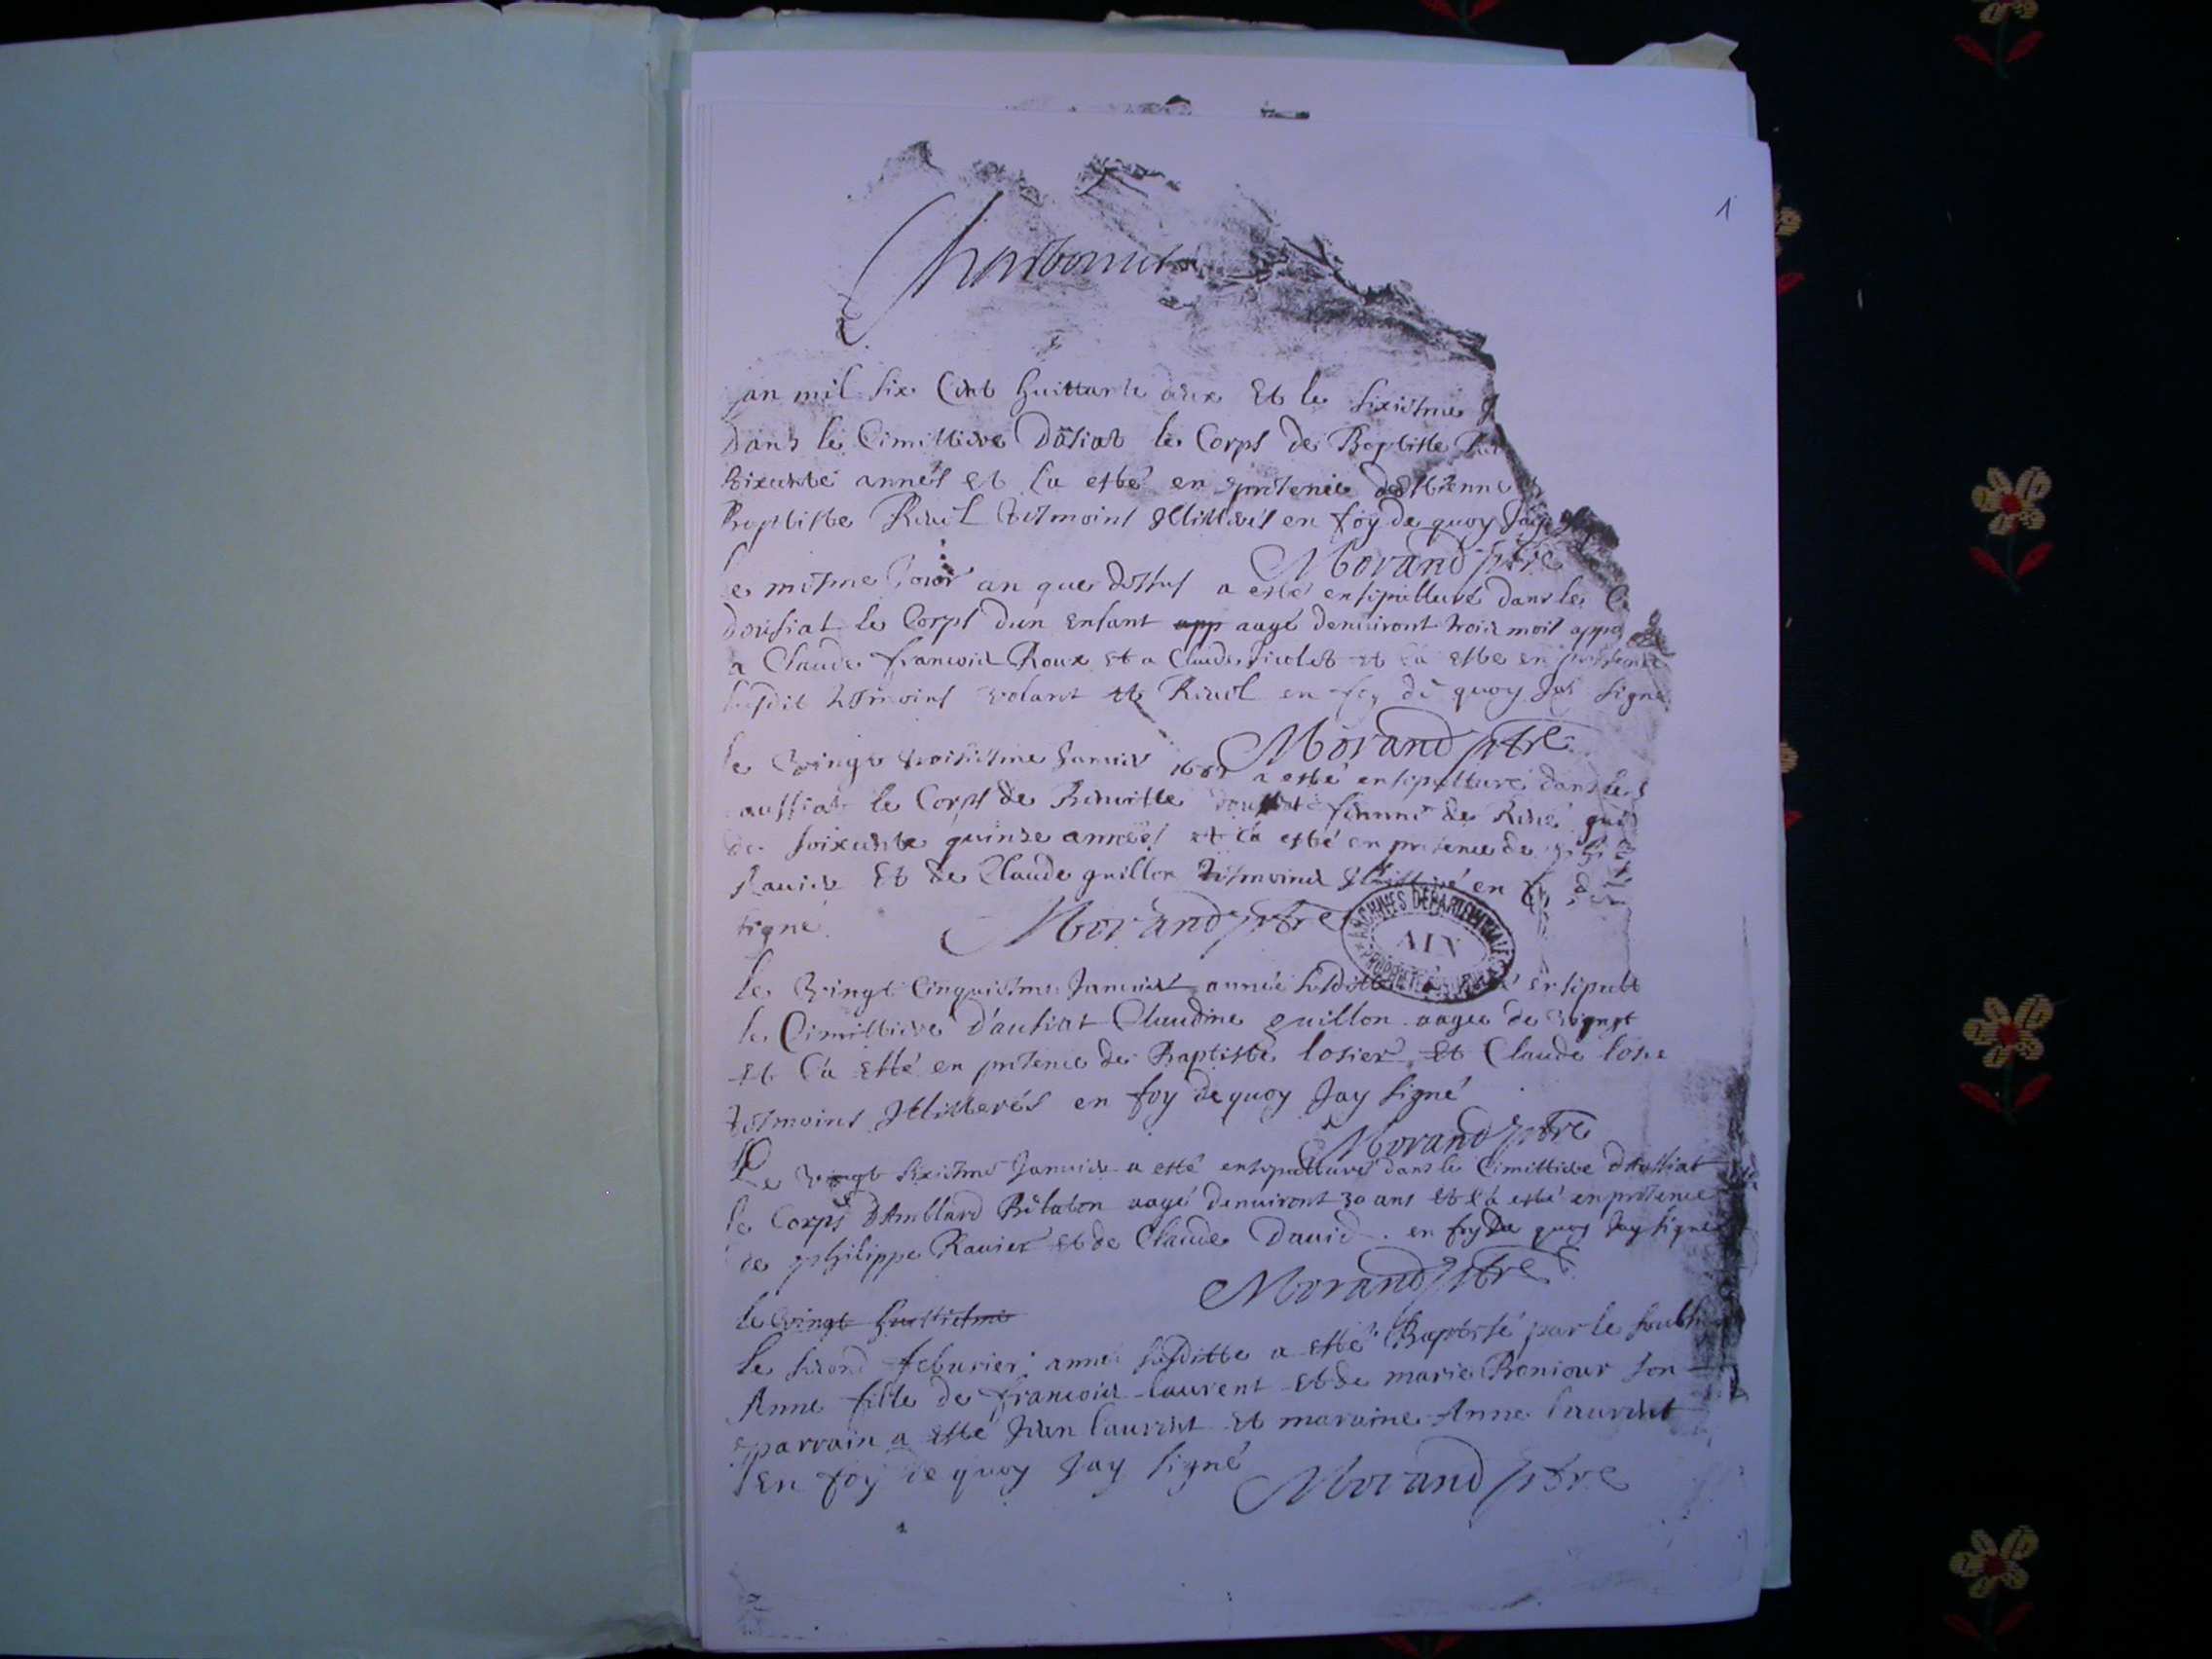 1
Charbonnier
an mil six Cent huittante deux Et le sixiesme
dans le Cimittiere Dasiat le Corps de Baptiste
soixante années et ca esté en presence destienne
Baptiste Revil tesmoins Illitterés en foy de quoy Jay
Morand ptre
e mesme Jour an que dessus a esté ensepulturé dans le
dousiat le Corps dun Enfant app aagé denviront trois mois appa
a Claude francois Roux et a Claude et ca esté en presence
susdit tesmoins volant et Revil en foy de quoy Jay signé
Morand ptre
le vingt troisiesme Janvier 1682 a esté ensepulturé dans le
aussiat le Corps de femme de
de soixante quinse années et ca esté en presence de
Ravier Et de Claude guillon tesmoins Illitteré en
signé
Morand ptre
ARCHIVES DEPARTEMENTALES
AIN
le vingt Cinquiesme Janvier année susditte ensepult
le Cimittiere d'ausiat Claudine guillon aagee de vingt
Et ca Esté en presence de Baptiste losier Et Claude losie
tesmoins Illitterés en foy de quoy Jay signé
Morand ptre
Le vingt sixiesme Janvier a esté ensepulturé dans le Cimittiere daussiat
le Corps dAmblard Bilaton aagé denviront 30 ans Et ca esté en presence
de philippe Ravier et de Claude David . en foy de quoy Jay signé
Morand ptre
le vingt huittiesme
le second febvrier anne susditte a esté Baptisé par le soubs
Anne fille de francois laurent et de marie Boniour son
parrain a esté Jean laurent et maraine Anne laurent
En foy de quoy Jay signé
Morand ptre